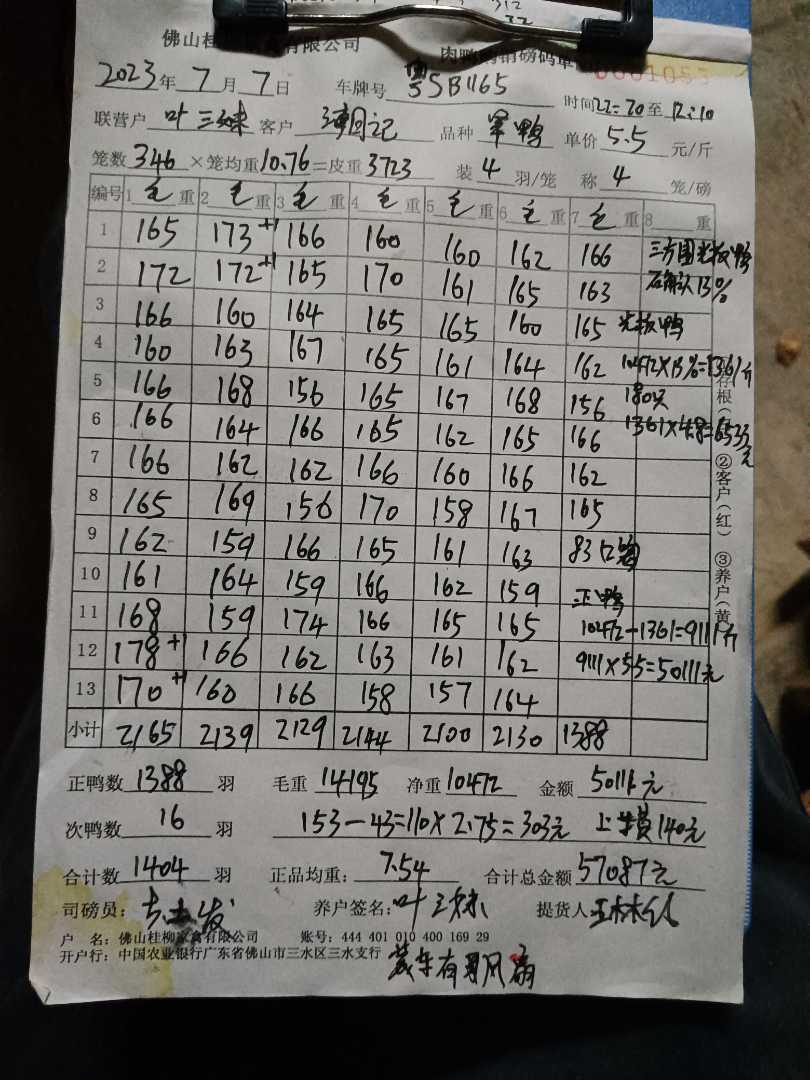 312
32
佛山桂柳家禽有限公司 肉鸭购销磅码单
0001053
2023年 7月 7日 车牌号 粤SB1165 时间 22:20 至 12:10
联营户 叶三妹 客户 品种 军鸭 单价 5.5 元/斤
笼数 346 ×笼均重 10.76 =皮重 3723 装 4 羽/笼 称 4 笼/磅
编号 1 毛 重 2 毛 重 3 毛 重 4 毛 重 5 毛 重 6 毛 重 7 毛 重 8 重
1 165 173+1 166 160 160 162 166
2 172 172+1 165 170 161 165 163 石角认13%
3 166 160 164 165 165 160 165 光板鸭
4 160 163 167 165 161 164 162 10472×13%=1361斤
5 166 168 156 165 167 168 156 180只
6 166 164 166 165 162 165 166 1361×4.8=6533元
7 166 162 162 166 160 166 162
8 165 169 156 170 158 167 165
9 162 159 166 165 161 163 83
10 161 164 159 166 162 159 正鸭
11 168 159 174 166 165 165 10472-1361=9111斤
12 178+1 166 162 163 161 162 9111×5.5=50111元
13 170+1 160 166 158 157 164
小计 2165 2139 2129 2144 2100 2130 1388
存根(
②客户(红)
③养户(黄
正鸭数 1388 羽 毛重 14195 净重 10472 金额 50111元
次鸭数 16 羽 153-43=110×2.75=303元 140元
合计数 1404 羽 正品均重: 7.54 合计总金额 57087元
司磅员: 养户签名: 叶三妹 提货人
户 名: 佛山桂柳家禽有限公司 账号: 444 401 010 400 169 29
开户行: 中国农业银行广东省佛山市三水区三水支行
装车有用风扇